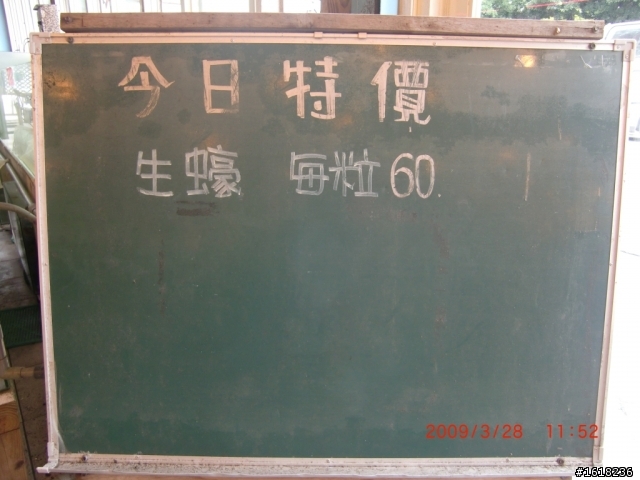 今日特價
生蠔 每粒60
2009/3/28 11:52
#1618236